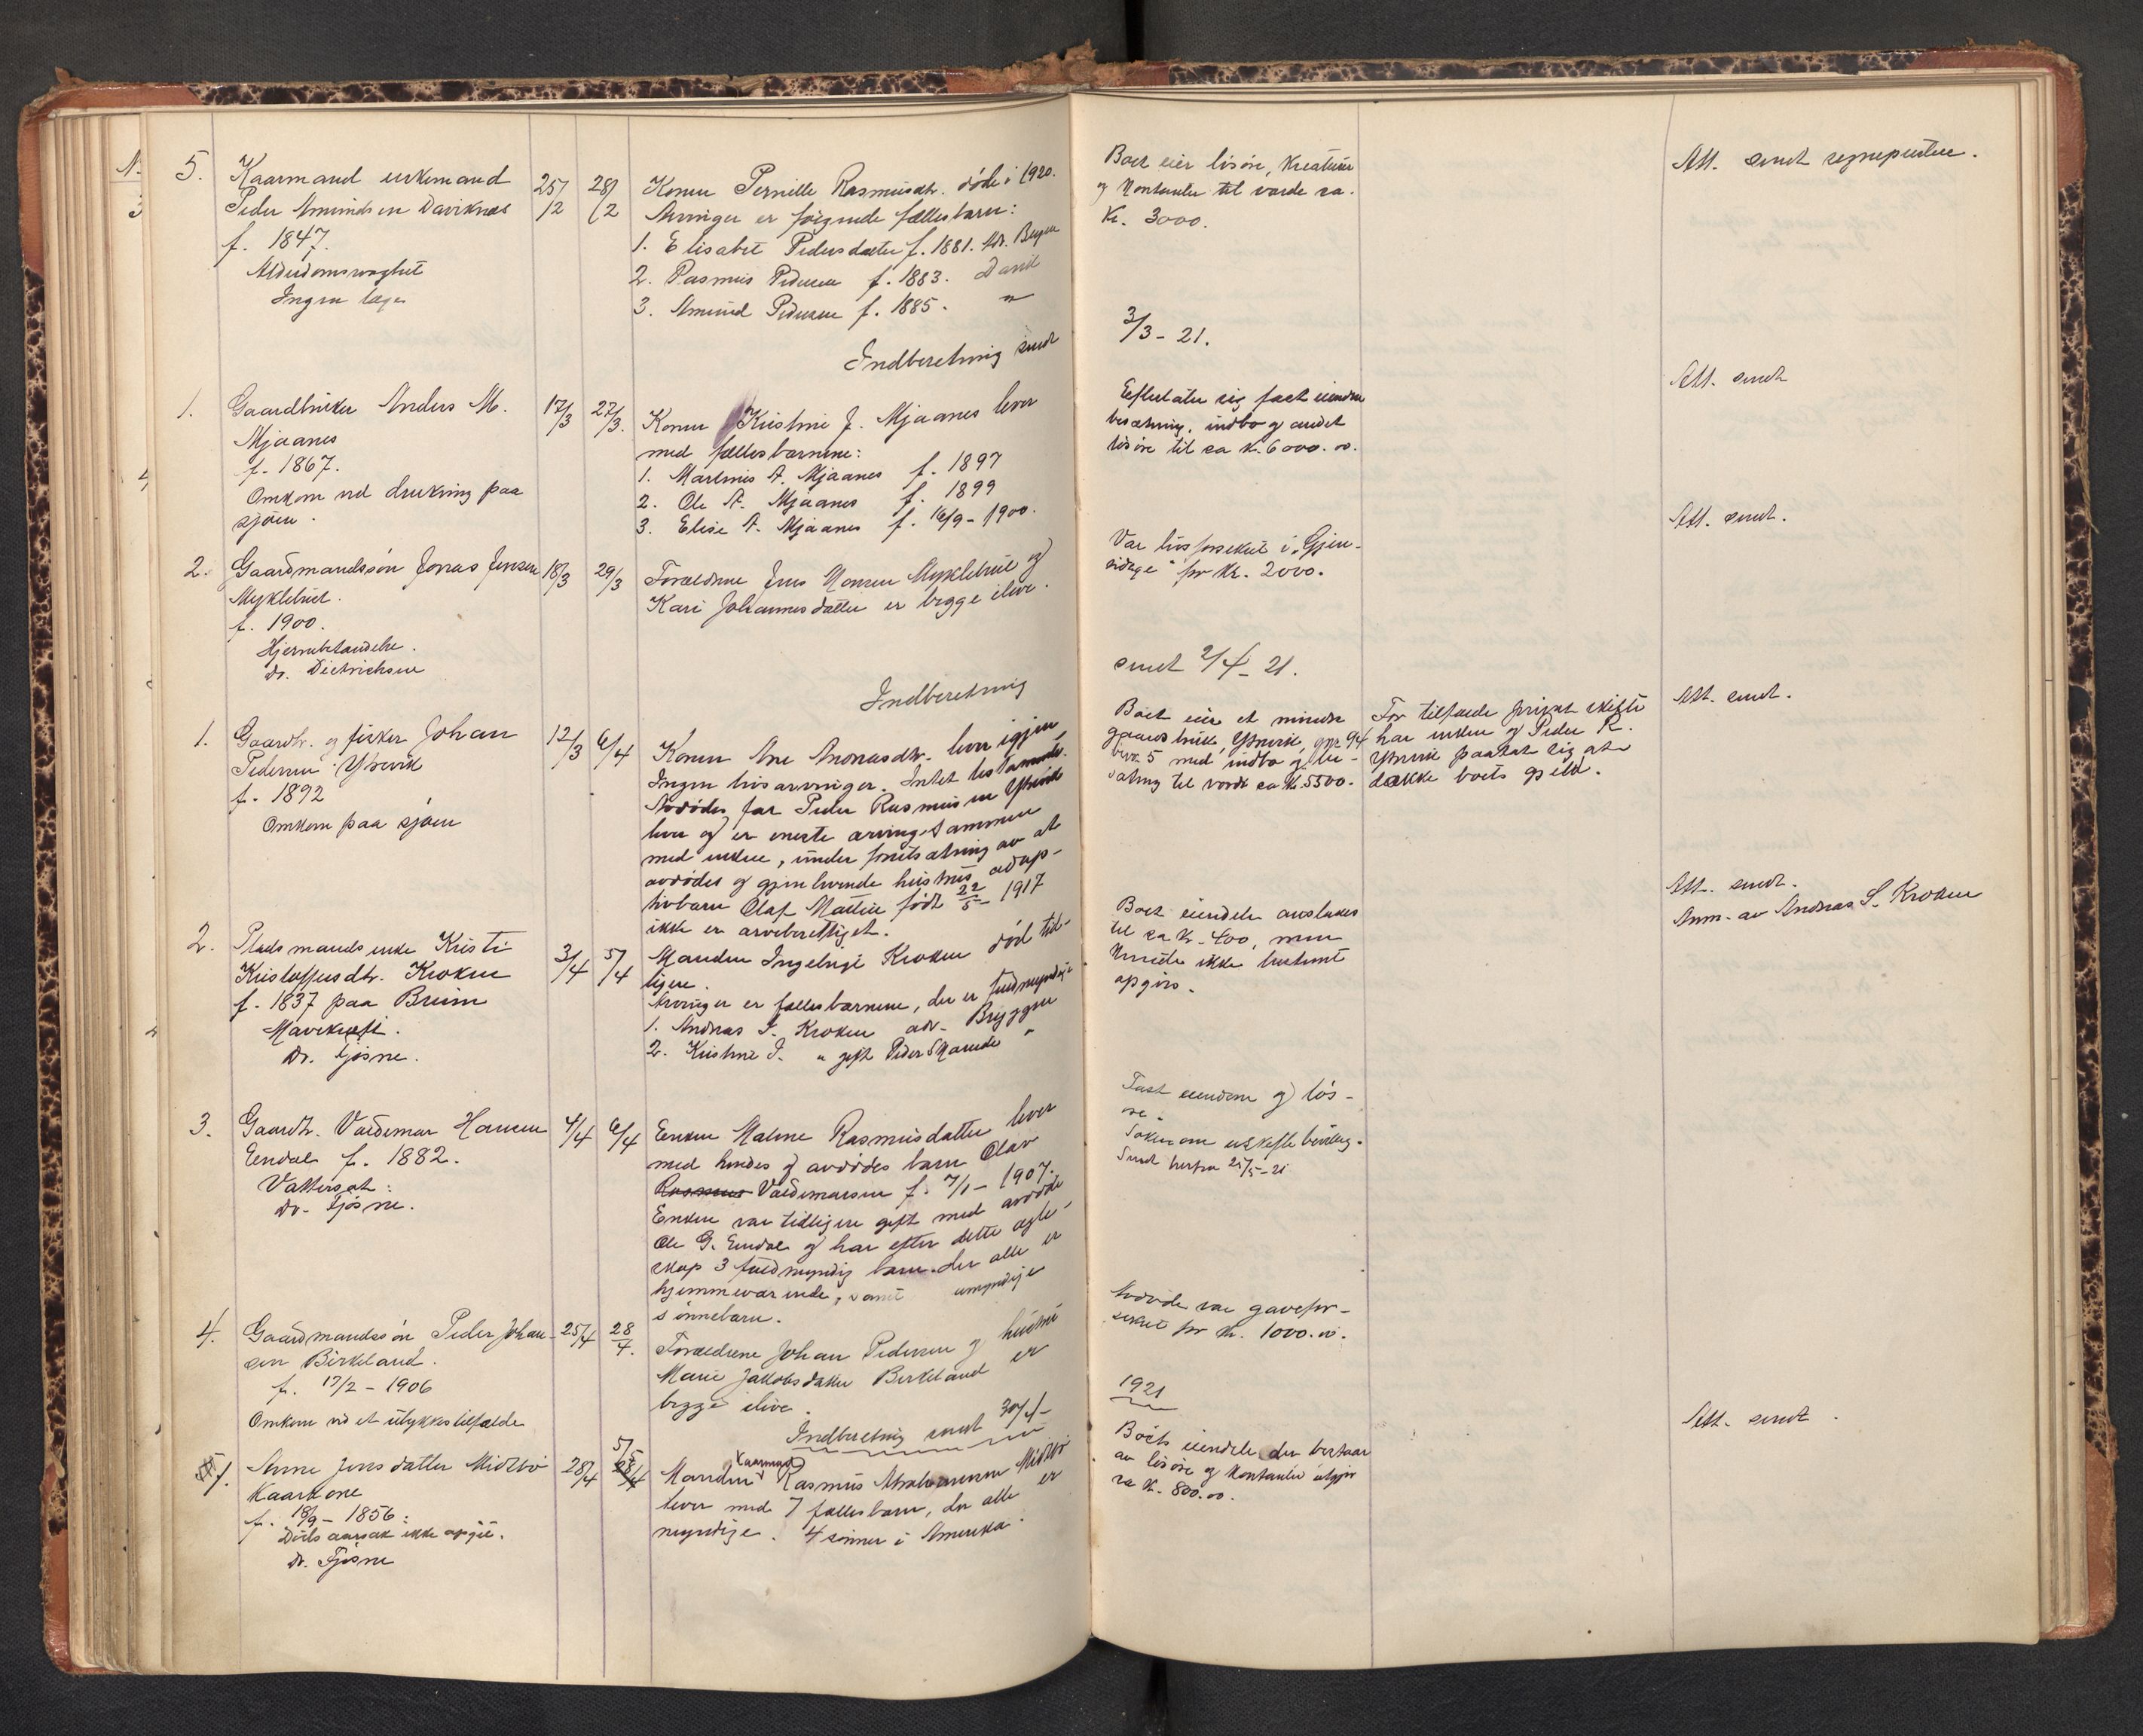 5. Kaarmand enkemand
Peder Amundsen Daviknes
f. 1847.
Alderdomssvaghet
Ingen læge
25/2 28/2
Konen Pernille Rasmusdtr. døde i 1920.
Arvinger er følgende fællesbarn:
1. Elisabet Pedersdatter f. 1881. Adr. Bergen
2. Rasmus Pedersen f. 1883. Davik
3. Amund Pedersen f. 1885. "
Boet eier løsøre, kreaturer
og kontanter til værde ca.
Kr. 3000.
Att. sendt
Indberetning sendt
3/3 - 21.
1. Gaardbruker Anders M.
Mjaanes
f. 1867.
Omkom ved drukning paa
sjøen.
17/3 27/3.
Konen Kristine J. Mjaanes lever
med fællesbarnene:
1. Martinus A. Mjaanes f. 1897
2. Ole A. Mjaanes f. 1899
3. Elise A. Mjaanes f. 16/9 - 1900.
Efterlater sig fast eiendom
besætning, indbo og andet
løsøre til ca kr. 6000.00.
Att. sendt
2. Gaardmandssøn Jonas Jensen
Myklebust.
f. 1900.
Hjernebetændelse.
Dr. Dietrichsen
18/3 29/3
Forældrene Jens Monsen Myklebust og
Kari Johannesdatter er begge ilive.
Var livsforsikret i "Gjen-
sidige" for Kr. 2000.
Att. sendt.
Indberetning
sendt 2/4 - 21.
1. Gaardbr. og fisker Johan
Pedersen Ytrevik
f. 1892
Omkom paa sjøen
12/3 6/4
Konen Ane Anonasdtr. lever igjen.
Ingen livsarvinger. Intet testamente.
Avdødes far Peder Rasmussen Ytrevik
lever og er eneste arving sammen
med enken, under forutsætning av at
avdødes og gjenlevende hustrus adop-
tivbarn Olaf Martin født 22/5 - 1917
ikke er arveberettiget.
Boet eier et mindre
gaardsbruk, Ytrevik, gnr 94
brnr 5 med indbo og be-
sætning til værdi ca Kr. 5500.
For tilfælde privat skifte
har enken og Peder R.
Ytrevik paatat sig at
dække boets gjeld.
Att. sendt.
2. Pladsmandsenke Kristi
Kristoffersdtr. Kroken
f. 1837 paa Breim
Mavekræft.
Dr. Fjøsne.
3/4 5/4
Manden Ingebrigt Kroken død tid-
ligere.
Arvinger er fællesbarnene, der er fuldmyndige
1. Andreas I. Kroken adr. Bryggen
2. Kristine I. " gift Peder Maurstad "
Boets eiendele anslaaes
til ca kr. 400, men
kunde ikke bestemt
opgives.
Att. sendt.
Anm. av Andreas I. Kroken
3. Gaardbr. Valdemar Hansen
Endal f. 1882.
Vattersot:
Dr. Fjøsne.
4/4 6/4
Enken Malene Rasmusdatter lever
med hendes og avdødes barn Olav
Rasmus Valdemarsen f. 7/1 - 1907.
Enken var tidligere gift med avdøde
Ole G. Endal og har efter dette egte-
skap 3 fuldmyndig barn der alle er
hjemmeværende, samt umyndige
sønnebarn.
Fast eiendom og løs-
øre.
Søker om uskiftebevilling.
Sendt herfra 25/5 - 21
4. Gaardmandssøn Peder Johan-
sen Birkeland.
f. 17/2 - 1906
Omkom ved et ulykkestilfælde
25/4 28/4.
Forældrene Johan Pedersen og hustru
Marie Jakobsdatter Birkeland er
begge ilive.
Avdøde var gavefor-
sikret for kr. 1000.00.
Indberetning sendt 30/4 -
1921
1. Anne Jensdatter Midtbø
Kaarkone
f. 18/9 - 1856:
Dødsaarsak ikke opgit.
Dr. Fjøsne
28/4 5/5
Manden Kaarmand Rasmus Abrahamsen Midtbø
lever med 7 fællesbarn, der alle er
myndige. 4 sønner i Amerika.
Boets eiendele der bestaar
av løsøre og kontanter utgjør
ca kr. 800.00.
Att. sendt.